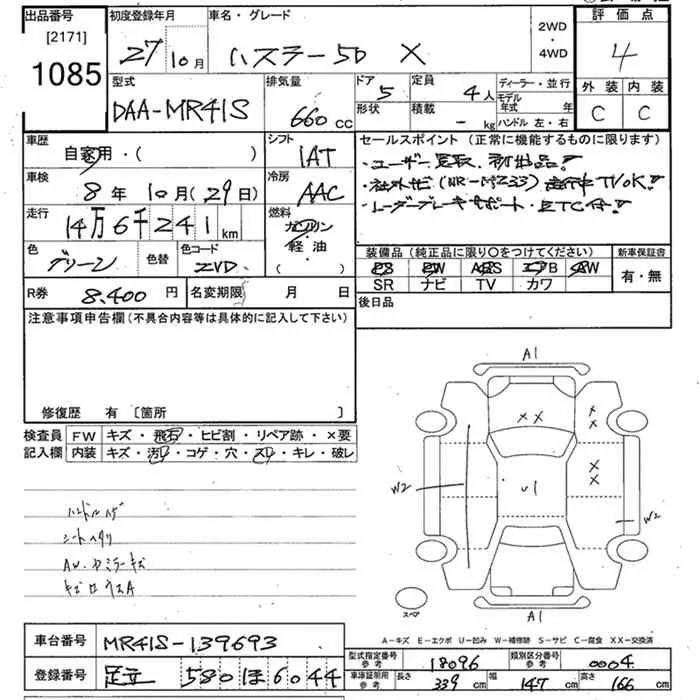 出品番号 初度登録年月 車名・グレード 評価点
[2171]
1085
27年10月 ハスラー5D X 2WD・4WD 4
外装 内装
C C
型式 排気量 ドア 定員 ディーラー・並行
DAA-MR41S 660cc 5 4人 モデル年式 年
形状 積載 -kg ハンドル 左・右
車歴 シフト セールスポイント(正常に機能するものに限ります)
自家用・( ) IAT ・ユーザー買取、初出品!
車検 冷房
8年10月(29日) AAC ・社外ナビ(NR-MZ33) TVOK!
走行 燃料 ・レーダーブレーキサポート・ETC付!
14万6千241km ガソリン
軽油
( )
色 色替 色コード 装備品(純正品に限り○をつけてください) 新車保証書
グリーン ZVD PS PW ABS エアB AW 有・無
SR ナビ TV カワ
R券 8,400円 名変期限 月 日 後日品
注意事項申告欄(不具合内容等は具体的に記入して下さい)
修復歴 有〔箇所 〕
検査員 FW キズ・飛石・ヒビ割・リペア跡・×要
記入欄 内装 キズ・汚レ・コゲ・穴・スレ・キレ・破レ
ハンドルハゲ
シートヘタリ
AW・ドミラーキズ
A1
××
×
×
×
×
W2
U1
W2
スペア
A1
A-キズ E-エクボ U-凹み W-補修跡 S-サビ C-腐食 XX-交換済
車台番号 MR41S-139693
登録番号 足立 580 ほ 6044
型式指定番号 参考 18096 類別区分番号 参考 0004
車庫証明用 参考 長さ 339cm 幅 147cm 高さ 166cm